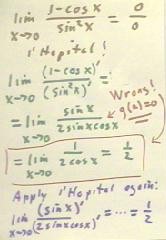 lim x→0 1-cosx / sin²x = 0/0
l'Hopital!
lim x→0 (1-cosx)' / (sin²x)' =
= lim x→0 sinx / 2sinxcosx
Wrong! g'(a)=0
= lim x→0 1 / 2cosx = 1/2
Apply l'Hopital again:
lim x→0 (sinx)' / (2sinxcosx)' = ... = 1/2